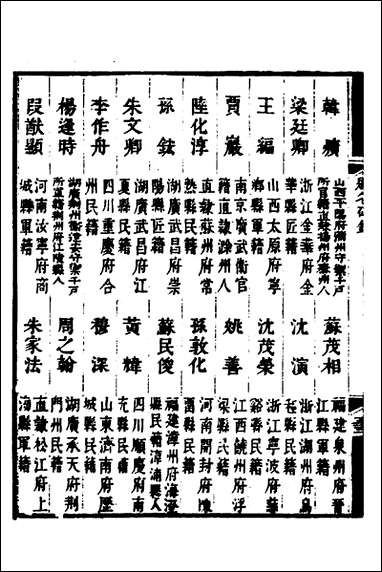 韓爌 山西平陽府蒲州守禦千戶所官籍直隸揚州府泰州人
梁廷卿 浙江金華府金華縣匠籍
王編 山西太原府寧鄉縣民籍
賈巖 南京廣武衛官籍直隸滁州人
陸化淳 直隸蘇州府常熟縣民籍
孫鋐 縣匠籍
朱文卿 湖廣武昌府江夏縣民籍
李作舟 四川重慶府合州民籍
楊逢時 湖廣荊州衛守禦千戶所官籍荊州府江陵縣人
段猷顯 河南汝寧府商城縣軍籍
蘇茂相 福建泉州府晉江縣軍籍
沈演 浙江湖州府烏程縣民籍
沈茂榮 浙江寧波府慈谿縣民籍
姚善 江西饒州府浮梁縣民籍
孫敦化 河南開封府縣民籍
蘇民俊 福建漳州府海澄縣民籍漳浦縣人
黃煒 四川順慶府南充縣民籍
穆深 山東濟南府歷城縣民籍
周之翰 湖廣承天府荊門州民籍
朱家法 直隸松江府上海縣軍籍